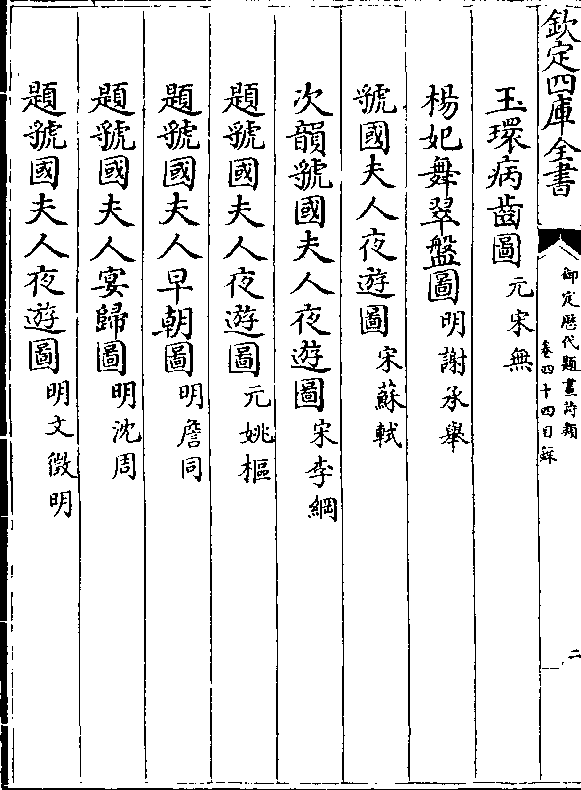 欽定四庫全書
御定歴代題畫詩類
卷四十四目録
二
玉環病齒圖 元宋無
楊妃舞翠盤圖 明謝承舉
虢國夫人夜遊圖 宋蘇軾
次韻虢國夫人夜遊圖 宋李綱
題虢國夫人夜遊圖 元姚樞
題虢國夫人早朝圖 明詹同
題虢國夫人宴歸圖 明沈周
題虢國夫人夜遊圖 明文徴明